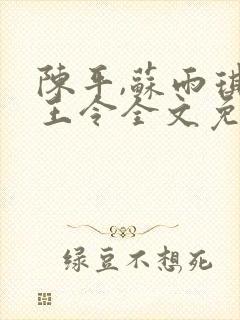 陳平,蘇雨琪
王令全文免
绿豆不想死